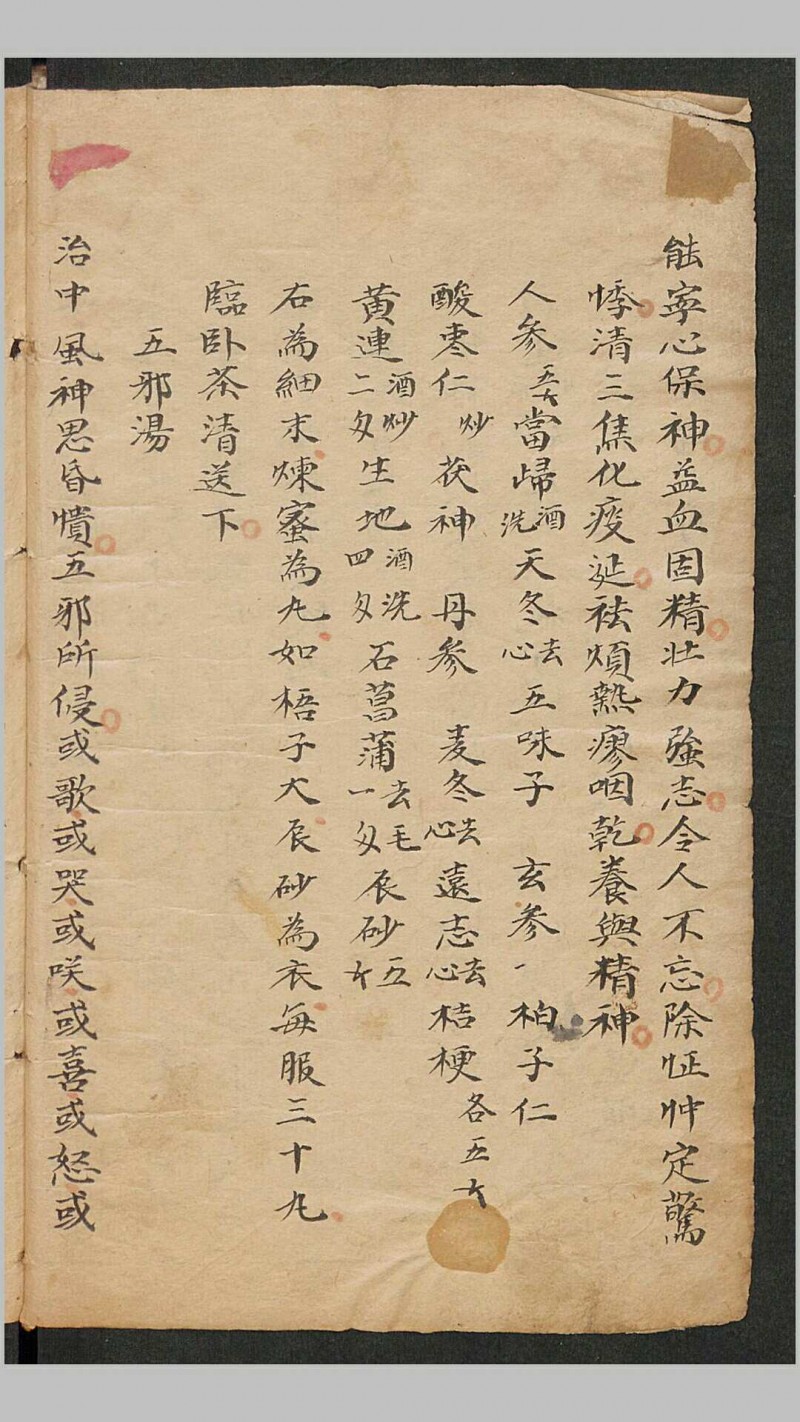 能寧心保神益血固精壮力強志令人不忘除怔忡定驚
悸清三焦化痰涎祛煩熱瘳咽乾養與精神
人參五𠂇當歸酒洗天冬去心五味子 玄參一柏子仁
酸枣仁炒 茯神 丹參 麦冬去心遠志去心桔梗各五
黄連酒炒二匁生地酒洗四匁石菖蒲去毛一匁辰砂五
右為細末煉蜜為丸如梧子大辰砂為衣每服三十丸
臨卧茶清送下
五邪湯
治中風神思昏憒五邪所侵或歌或哭或咲或喜或怒或